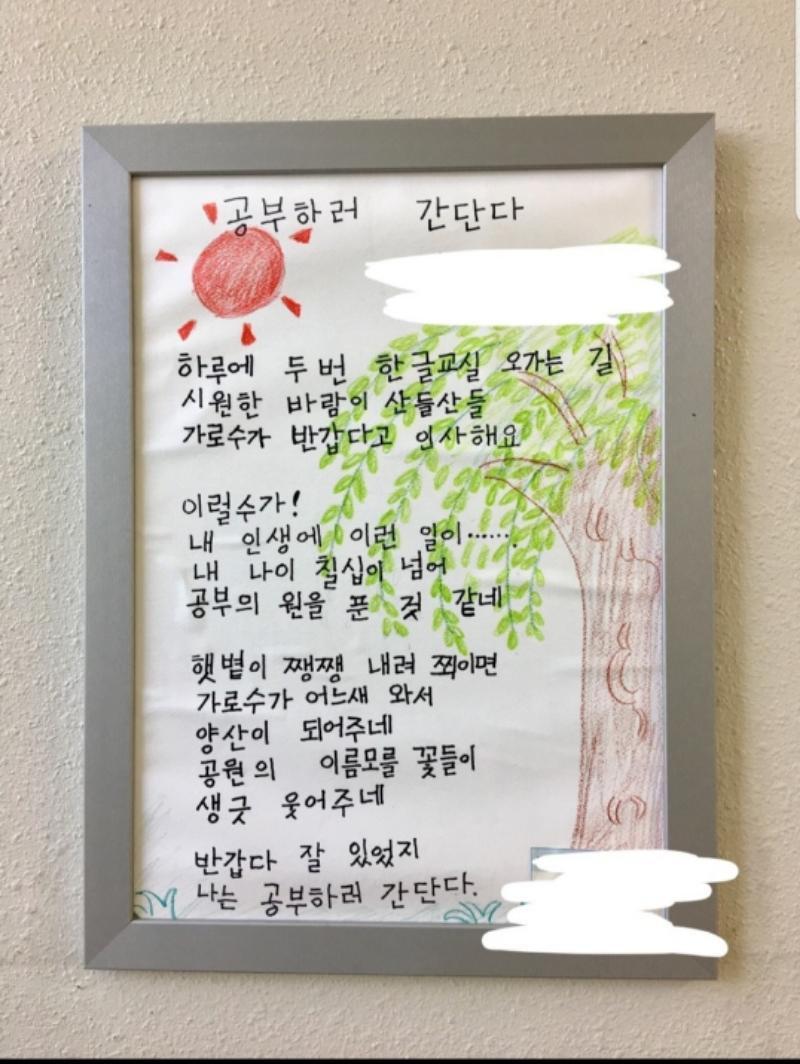 공부하러 간단다
하루에 두 번 한글교실 오가는 길
시원한 바람이 산들산들
가로수가 반갑다고 인사해요
이럴수가!
내 인생에 이런 일이……
내 나이 칠십이 넘어
공부의 원을 푼 것 같네
햇볕이 쨍쨍 내려 쬐이면
가로수가 어느새 와서
양산이 되어주네
공원의 이름모를 꽃들이
생긋 웃어주네
반갑다 잘 있었지
나는 공부하러 간단다.